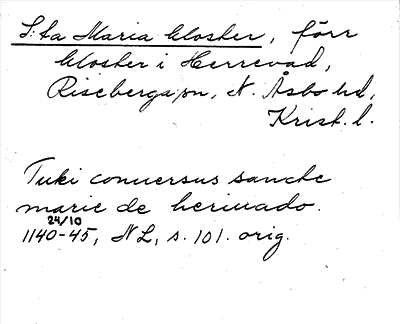 S:ta Maria kloster, förr
kloster i Herrevad,
Riseberga sn, N. Åsbo hd,
Krist. l.
Tuki conuersus sancte
marie de heriuado.
24/10
1140-45, NL, s. 101. orig.